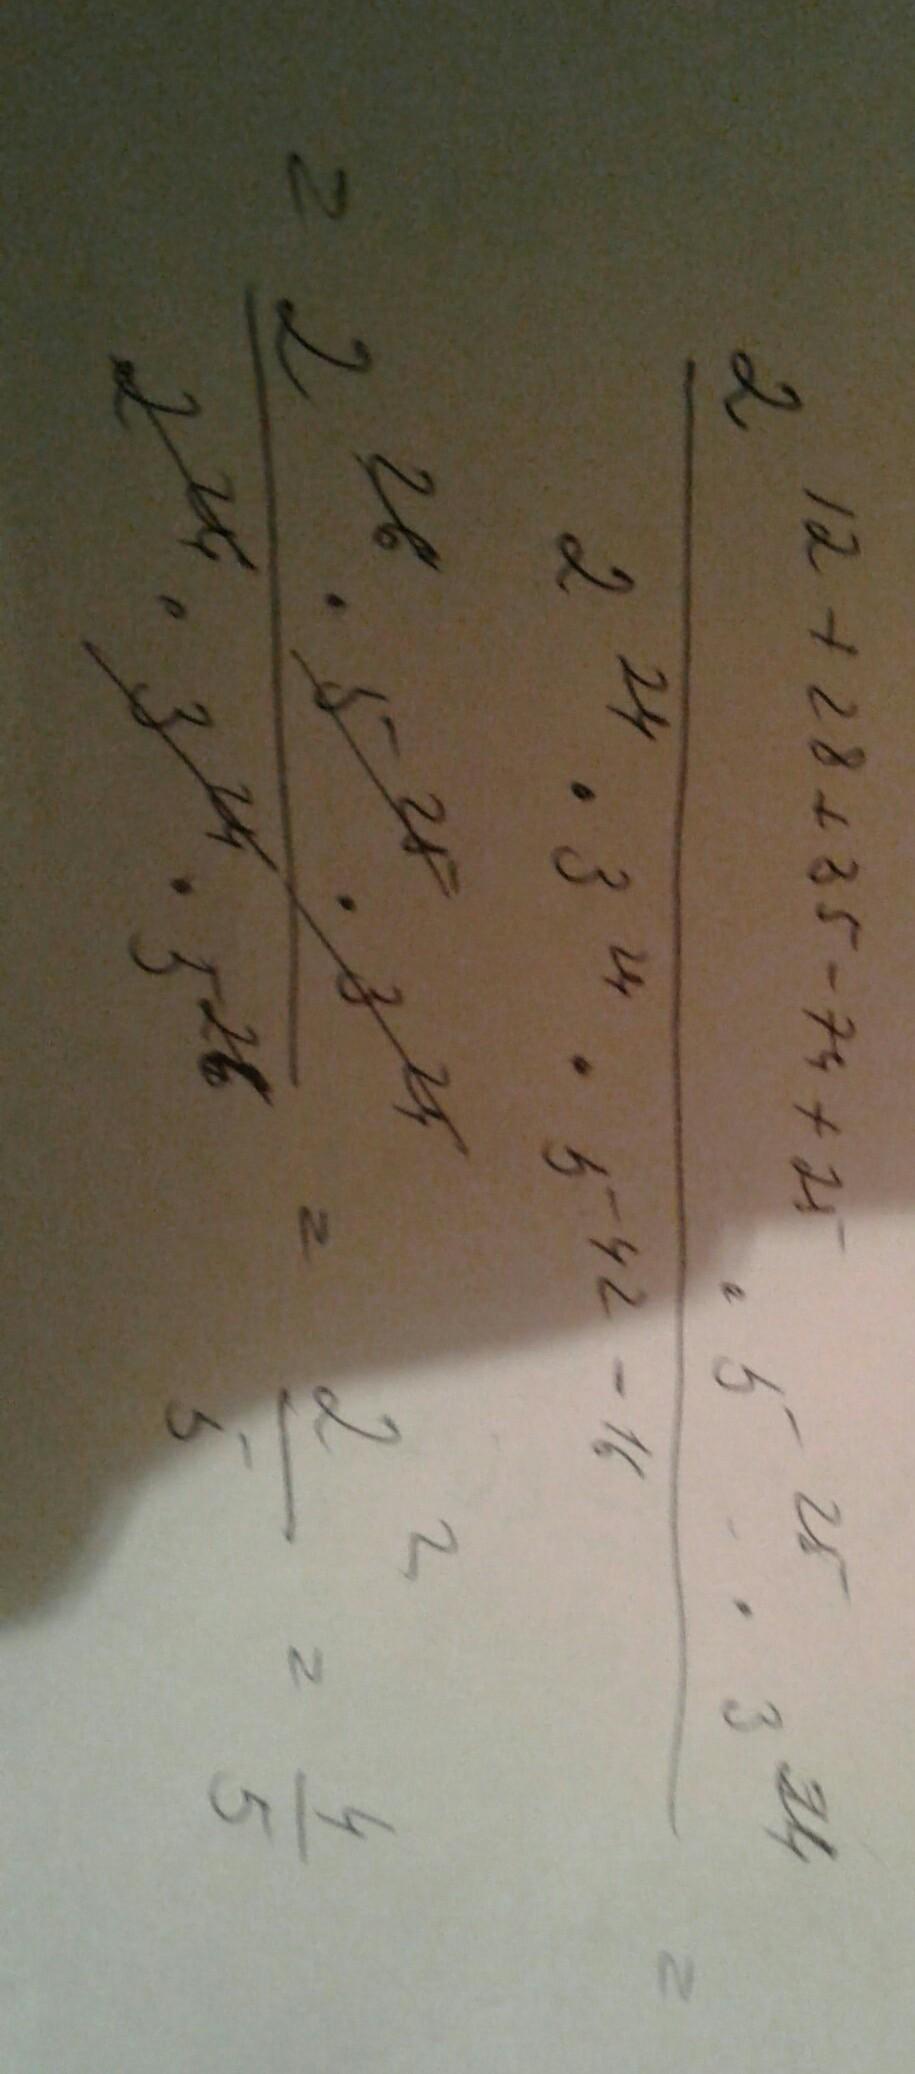 2^{12+28+35-74+25} · 5^{25} · 3^{24} =
2^{24} · 3^{4} · 5^{42-16}
= 2^{26} · 5^{25} · 3^{24} = 2^{2} = 4
2^{24} · 3^{24} · 5^{26} 5 5